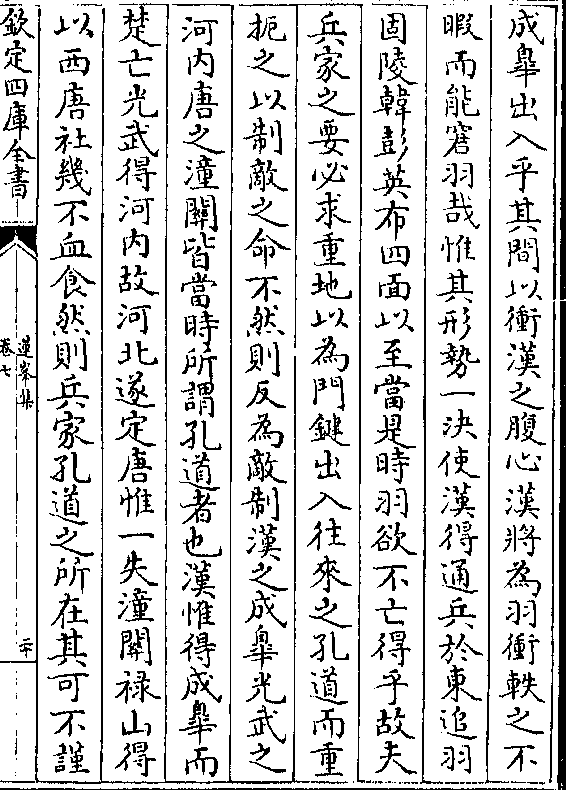 成臯出入乎其間以衝漢之腹心漢將為羽衝軼之不
暇而能窘羽哉惟其形勢一決使漢得通兵於東追羽
固陵韓彭英布四面以至當是時羽欲不亡得乎故夫
兵家之要必求重地以為門鍵出入往來之孔道而重
扼之以制敵之命不然則反為敵制漢之成臯光武之
河内唐之潼關皆當時所謂孔道者也漢惟得成臯而
楚亡光武得河内故河北遂定唐惟一失潼關禄山得
以西唐社幾不血食然則兵家孔道之所在其可不謹
欽定四庫全書
蓮峯集
卷七
二十